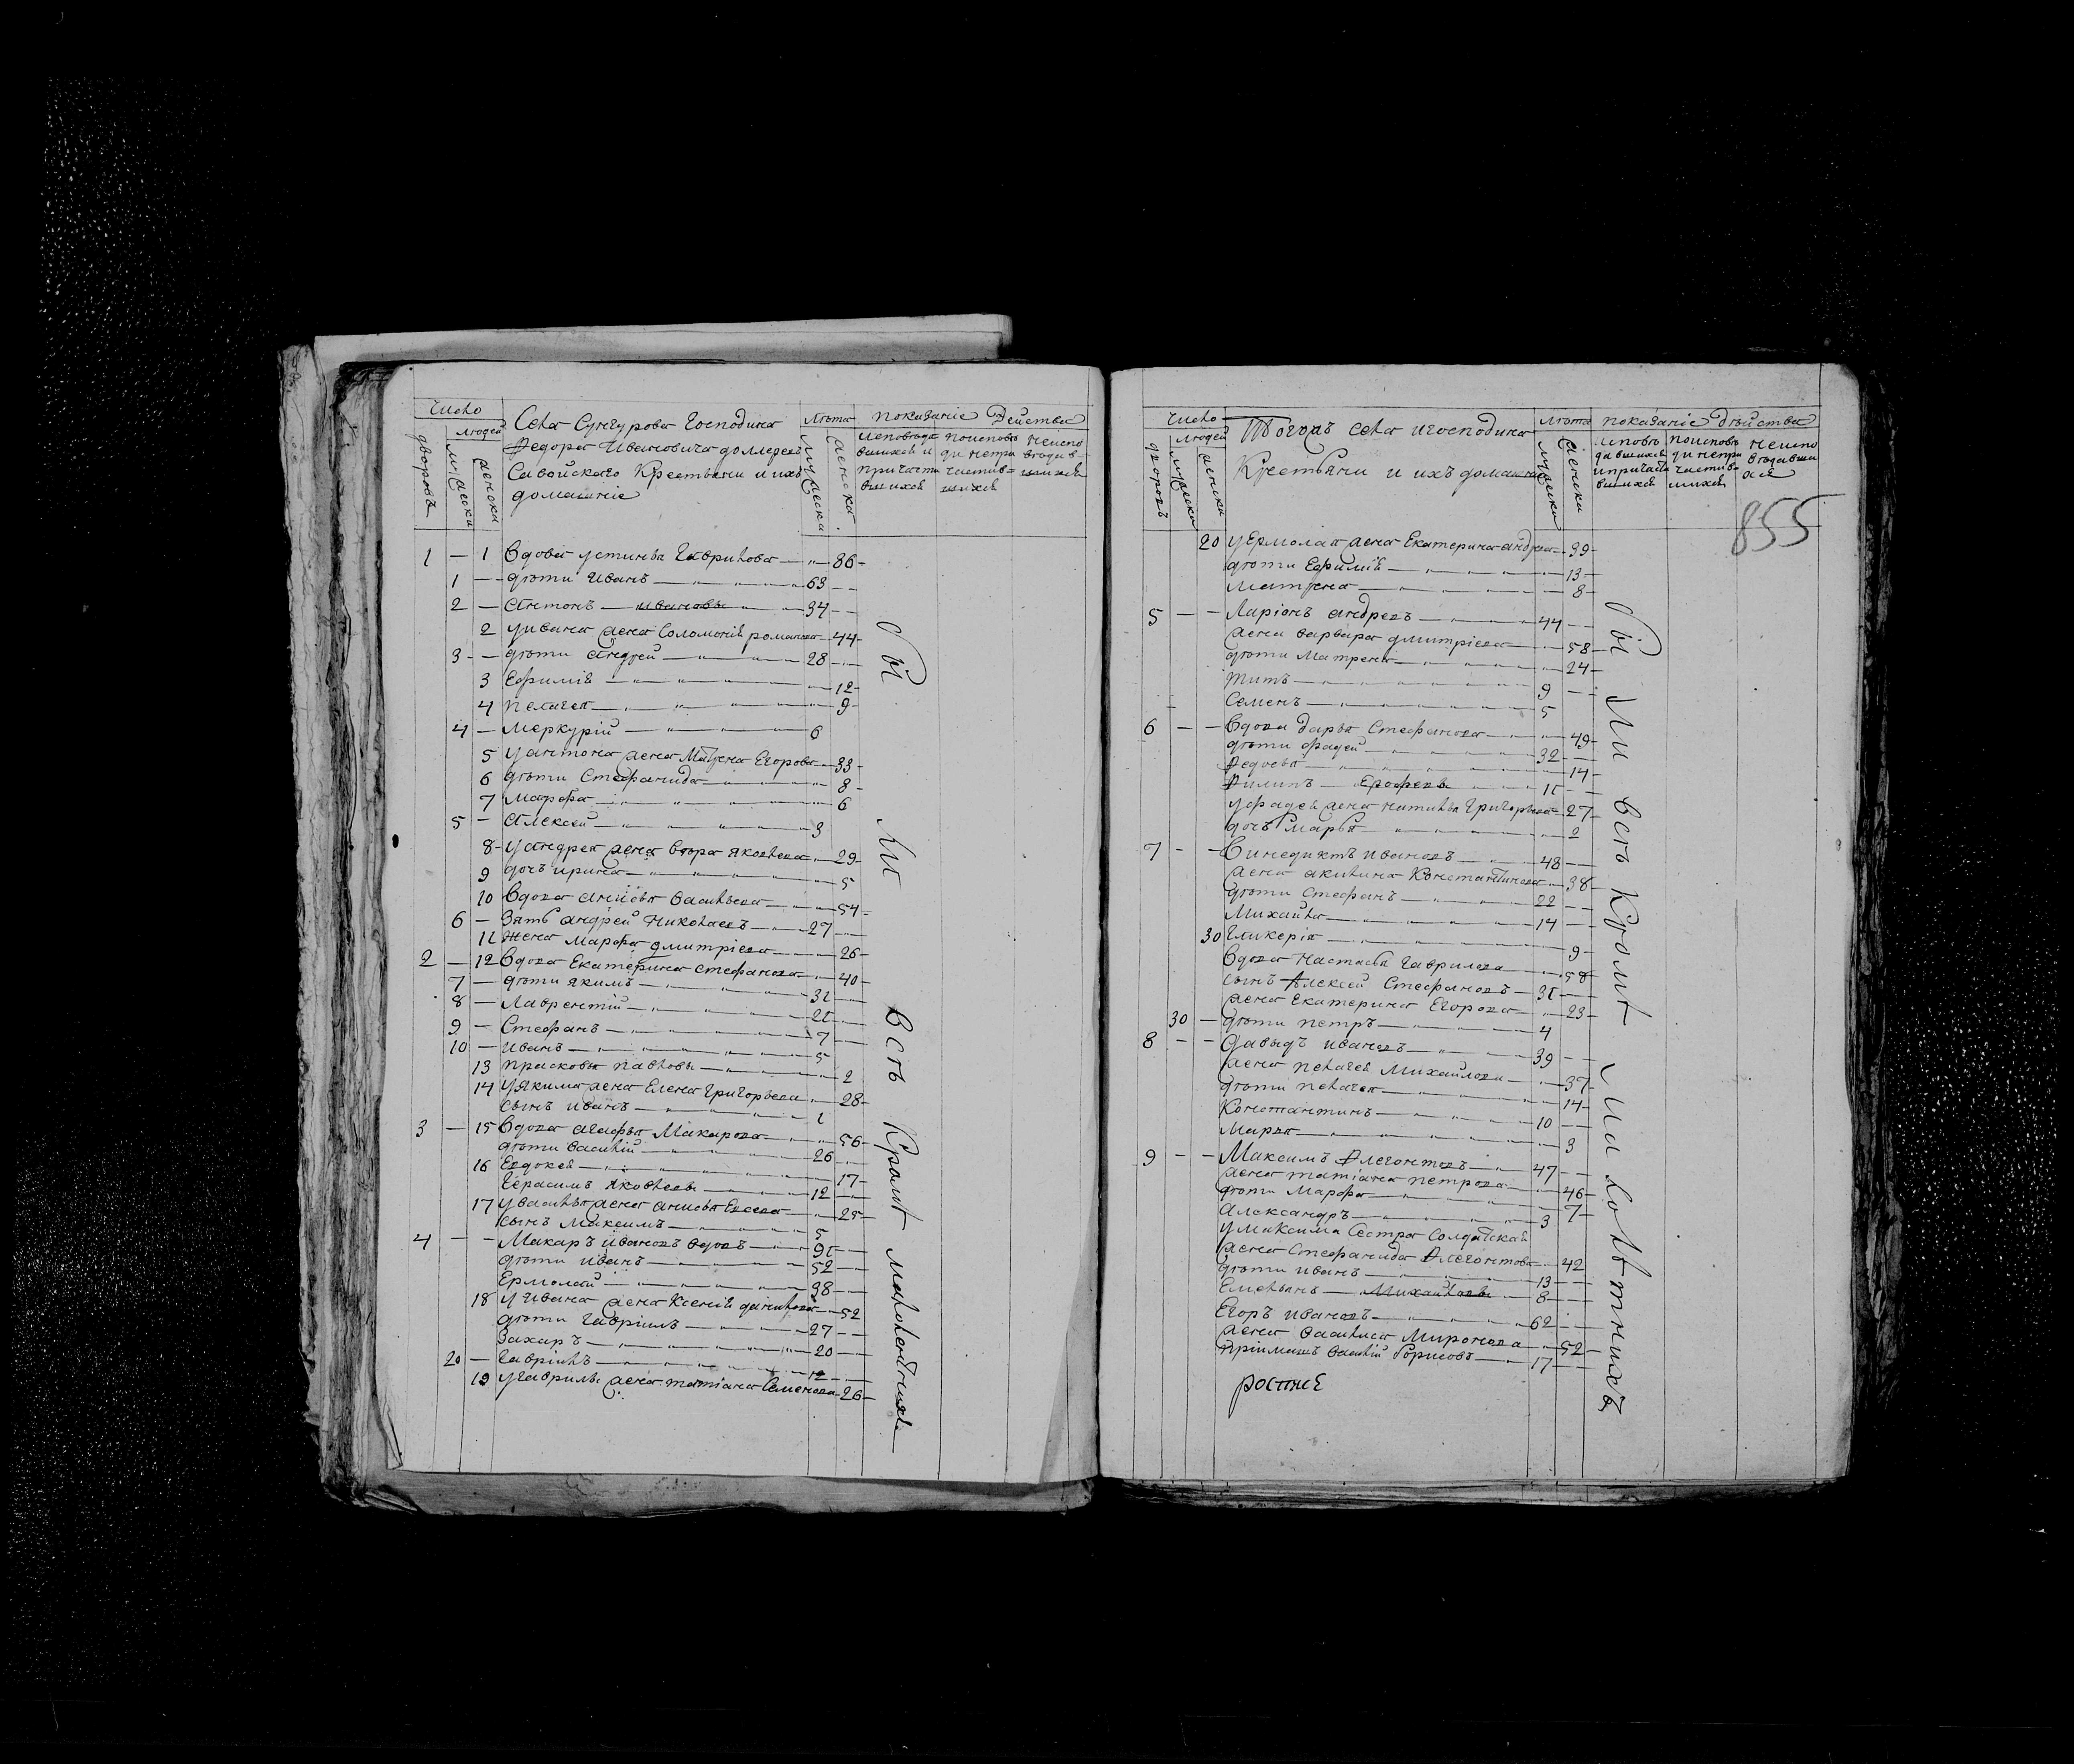 Число
людей
дворовъ
мужеска
женска
Села Сунгурова Господина
Федора Ивановича
Савойскаго Крестьяни и ихъ
домашніе
Лѣта
мужеска
женска
показаніе Действа
1 — 1 Вдова устинья Гаврилова — 86
1 — дѣти Иванъ — 63
2 — Антонъ ивановы — 34
2 у ивана жена Соломонія романова — 44
3 — дѣти Андрей — 28
3 Ефимія — 12
4 пелагея — 9
4 — Меркурій — 6
5 у антона жена Матрена Егорова — 33
6 дѣти Стефанида — 8
7 Марфа — 6
5 — Алексей — 3
8 у андрея жена вѣра яковлева — 29
9 дочь ирина — 5
10 Вдова анисья васильева — 54
6 — Зять андрей Николаевъ — 27
11 жена Марфа дмитріева — 26
2 — 12 Вдова Екатерина стефанова — 40
7 — дѣти якимъ — 31
8 — Лаврентій — 21
9 — Стефанъ — 7
10 — иванъ — 5
13 прасковья павловы — 2
14 у якима жена Елена григорьева — 28
сынъ иванъ — 1
3 — 15 Вдова агафья Макарова — 56
дѣти василій — 26
16 Евдокея — 17
Герасимъ яковлевы — 12
17 у василья жена анисья — 25
сынъ Максимъ — 5
4 — — Макаръ ивановъ вдовъ — 91
дѣти иванъ — 52
Ермолай — 38
18 у ивана жена Ксенія данилова — 52
дѣти Гавріилъ — 27
Захаръ — 20
20 — Гавріилъ — 12
19 у гаврилы жена татіана Семенова — 26
Бы ли всѣ Кромѣ малолѣтнихъ
Число
людей
дворовъ
мужеска
женска
Тогожъ села игосподина
Крестьяни и ихъ домашніе
Лѣта
мужеска
женска
показаніе дѣйства
855
20 у Ермолая жена Екатерина андреева — 39
дѣти Ефимія — 13
Матрена — 8
5 — — Ларіонъ андреевъ — 44
жена варвара дмитріева — 58
дѣти Матрена — 24
титъ — 9
Семенъ — 5
6 — — Вдова дарья Стефанова — 49
дѣти фадей — 32
Федосья — 14
Филипъ Ерофеевы — 11
у фадея жена наталья Григорьева — 27
дочь Марья — 2
7 — — Винедиктъ ивановъ — 48
жена акилина Константинова — 38
дѣти Стефанъ — 22
Михайла — 14
30 Гликерія — 9
Вдова Настасья Гаврилова — 58
сынъ Алексей Стефановъ — 31
жена Екатерина Егорова — 23
30 — дѣти петръ — 4
8 — — Давыдъ ивановъ — 39
жена пелагея Михайлова — 37
дѣти пелагея — 14
Константинъ — 10
Марья — 3
9 — — Максимъ Флегонтовъ — 47
жена татіана петрова — 46
дѣти Марфа — 7
Александръ — 3
у Максима Сестра Солдатская
жена Стефанида Флегонтова — 42
дѣти иванъ — 13
Емельянъ Михайловы — 8
Егоръ ивановъ — 62
жена василиса Миронова — 52
пріимышъ василій борисовъ — 17
Бы ли всѣ Кромѣ Малолѣтнихъ